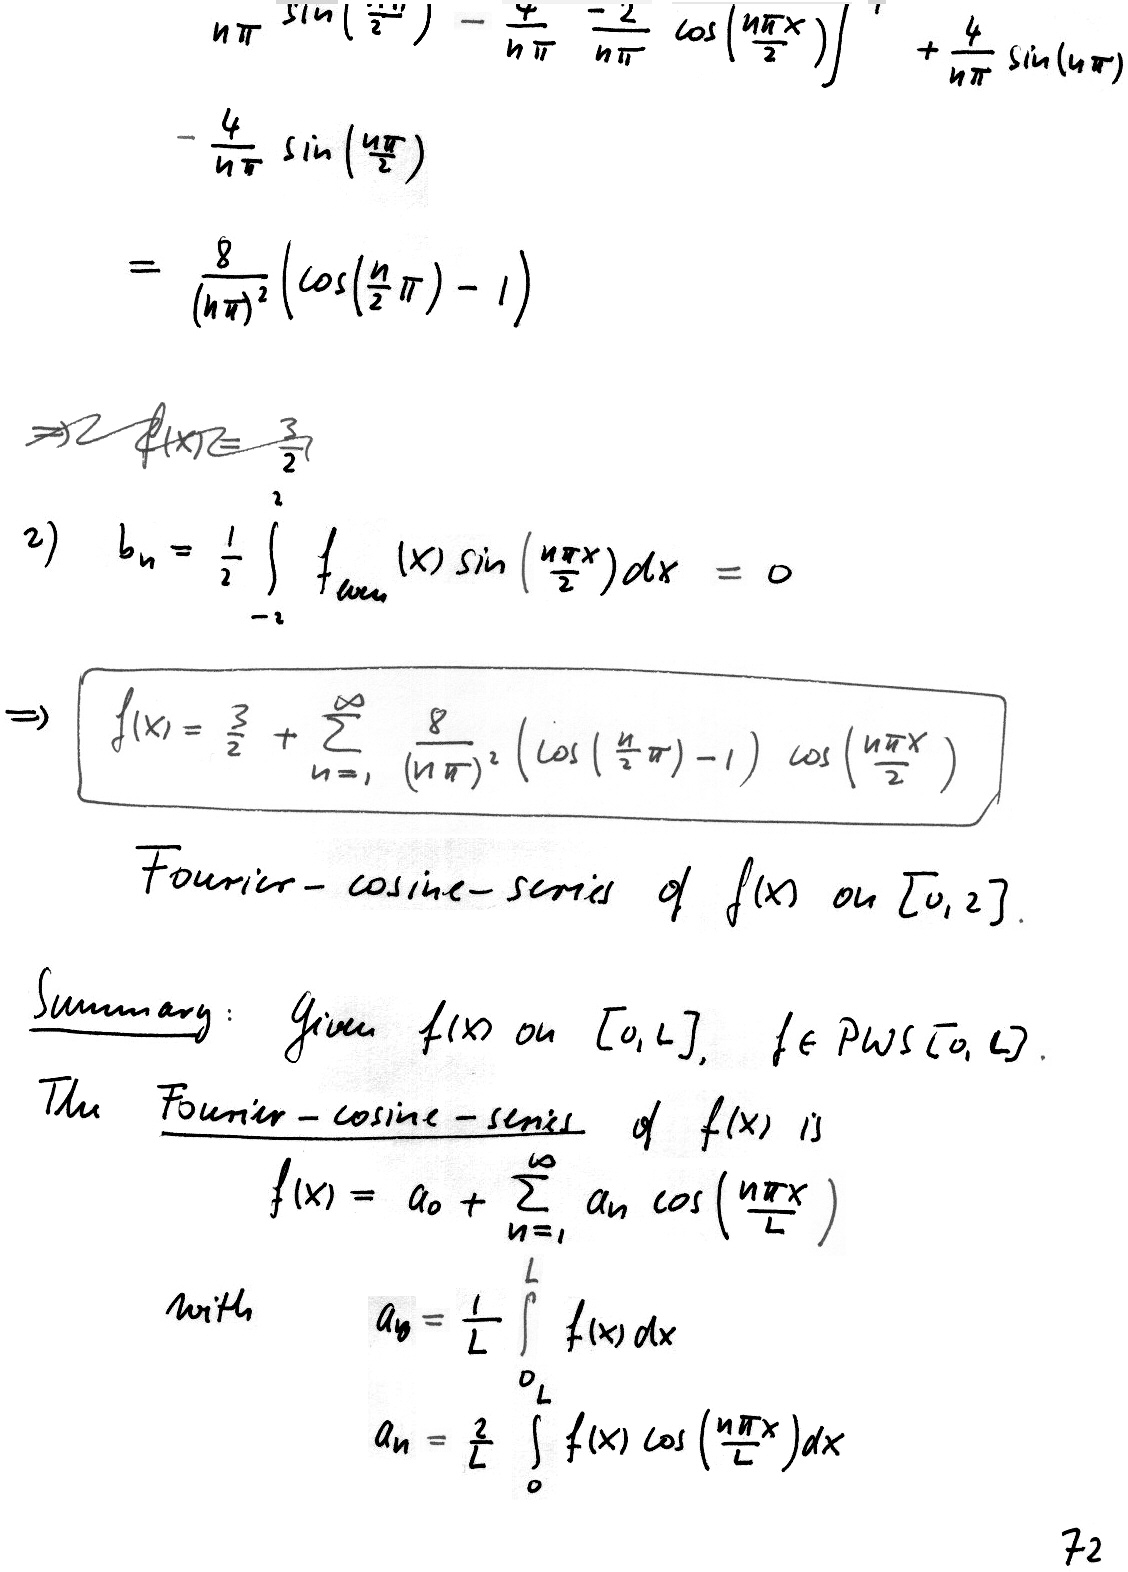 nπ sin(nπ/2) − 4/nπ −2/nπ cos(nπx/2)] + 4/nπ sin(nπ)
− 4/nπ sin(nπ/2)
= 8/(nπ)² (cos(n/2 π) − 1)
⇒ f(x) = 3/2
2) bₙ = 1/2 ∫₋₂² f_even (x) sin(nπx/2) dx = 0
⇒ f(x) = 3/2 + ∑ₙ₌₁^∞ 8/(nπ)² (cos(n/2 π) − 1) cos(nπx/2)
Fourier-cosine-series of f(x) on [0, 2].
Summary: Given f(x) on [0, L], f ∈ PWS[0, L].
The Fourier-cosine-series of f(x) is
f(x) = a₀ + ∑ₙ₌₁^∞ aₙ cos(nπx/L)
with a₀ = 1/L ∫₀ᴸ f(x) dx
aₙ = 2/L ∫₀ᴸ f(x) cos(nπx/L) dx
72